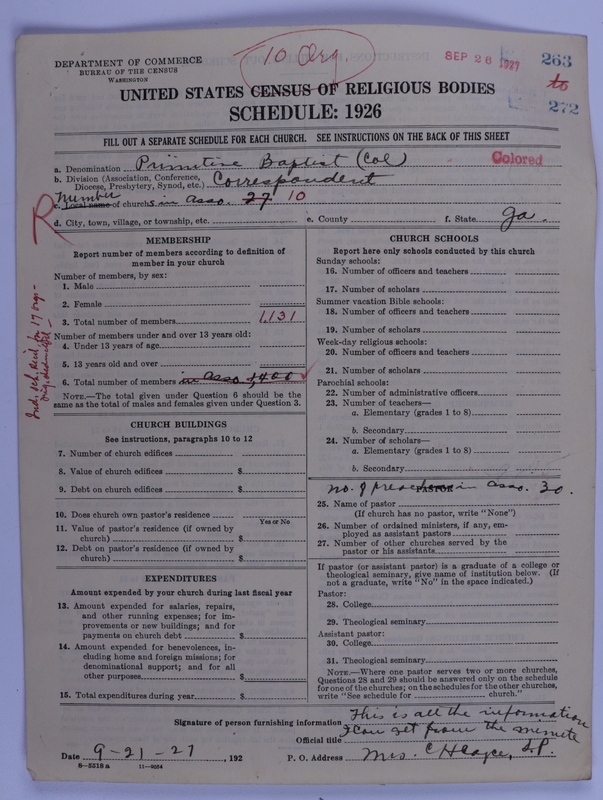 10 Org.
SEP 26 1927
263
to
272
DEPARTMENT OF COMMERCE
BUREAU OF THE CENSUS
WASHINGTON
UNITED STATES CENSUS OF RELIGIOUS BODIES
SCHEDULE: 1926
FILL OUT A SEPARATE SCHEDULE FOR EACH CHURCH. SEE INSTRUCTIONS ON THE BACK OF THIS SHEET
a. Denomination Primitive Baptist (Col)
Colored
b. Division (Association, Conference, Diocese, Presbytery, Synod, etc.) Correspondent
Member
c. Local name of churchs in Asso. 27 10
d. City, town, village, or township, etc. e. County f. State Ga.
R
Ind. sch. Rec'd. for 17 orgs-
MEMBERSHIP
Report number of members according to definition of
member in your church
Number of members, by sex:
1. Male
2. Female
3. Total number of members 1,131
Number of members under and over 13 years old:
4. Under 13 years of age
5. 13 years old and over
6. Total number of members in Asso 1,400
NOTE.—The total given under Question 6 should be
same as the total of males and females given under Question 3.
CHURCH BUILDINGS
See instructions, paragraphs 10 to 12
7. Number of church edifices
8. Value of church edifices $
9. Debt on church edifices $
10. Does church own pastor's residence
Yes or No
11. Value of pastor's residence (if owned by
church) $
12. Debt on pastor's residence (if owned by
church) $
EXPENDITURES
Amount expended by your church during last fiscal year
13. Amount expended for salaries, repairs,
and other running expenses; for im-
provements or new buildings; and for
payments on church debt $
14. Amount expended for benevolences, in-
cluding home and foreign missions; for
denominational support; and for all
other purposes $
15. Total expenditures during year $
CHURCH SCHOOLS
Report here only schools conducted by this church
Sunday schools:
16. Number of officers and teachers
17. Number of scholars
Summer vacation Bible schools:
18. Number of officers and teachers
19. Number of scholars
Week-day religious schools:
20. Number of officers and teachers
21. Number of scholars
Parochial schools:
22. Number of administrative officers
23. Number of teachers—
a. Elementary (grades 1 to 8)
b. Secondary
24. Number of scholars—
a. Elementary (grades 1 to 8)
b. Secondary
no. of preachers in Asso. 30.
PASTOR
25. Name of pastor
(If church has no pastor, write "None")
26. Number of ordained ministers, if any, em-
ployed as assistant pastors
27. Number of other churches served by the
pastor or his assistants
If pastor (or assistant pastor) is a graduate of a college or
theological seminary, give name of institution below. (If
not a graduate, write "No" in the space indicated.)
Pastor:
28. College
29. Theological seminary
Assistant pastor:
30. College
31. Theological seminary
NOTE.—Where one pastor serves two or more churches,
Questions 28 and 29 should be answered only on the schedule
for one of the churches; on the schedules for the other churches,
write "See schedule for church."
Signature of person furnishing information This is all the information
Official title I can get from the minute
Date 9-21-27, 192 P. O. Address Mrs. C H
8—5518 a 11—9054